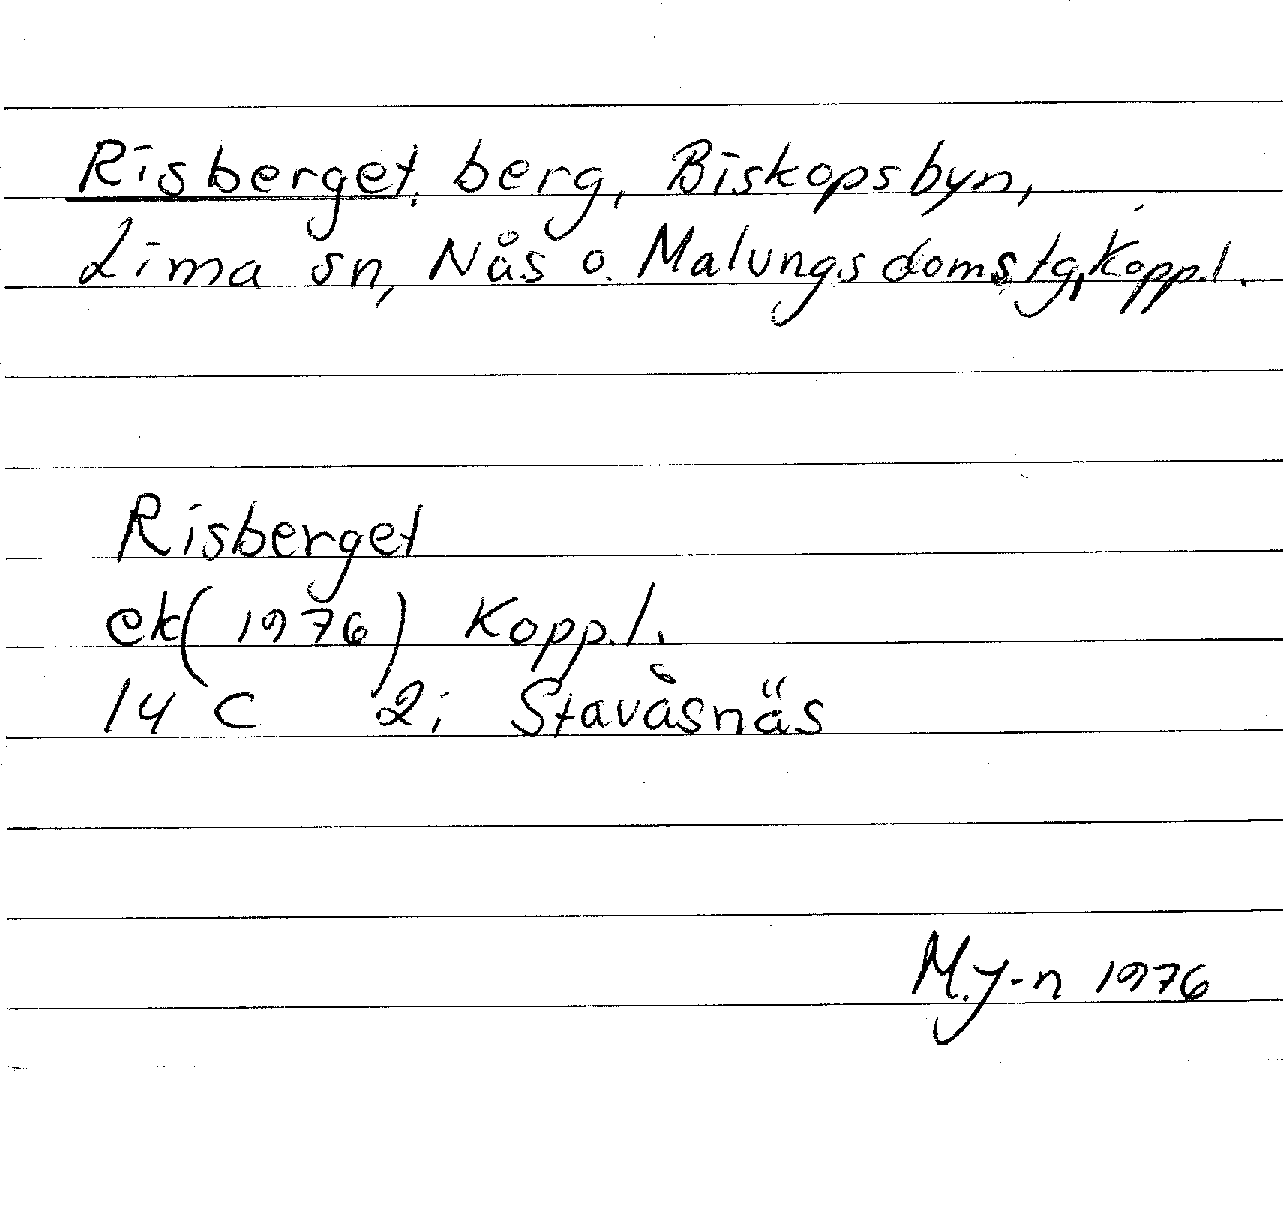 Risberget, berg, Biskopsbyn,
Lima sn, Nås o. Malungs domstg, Kopp.l.
Risberget
ek (1976) Kopp.l.
14 C 2i Stavåsnäs
M.J-n 1976